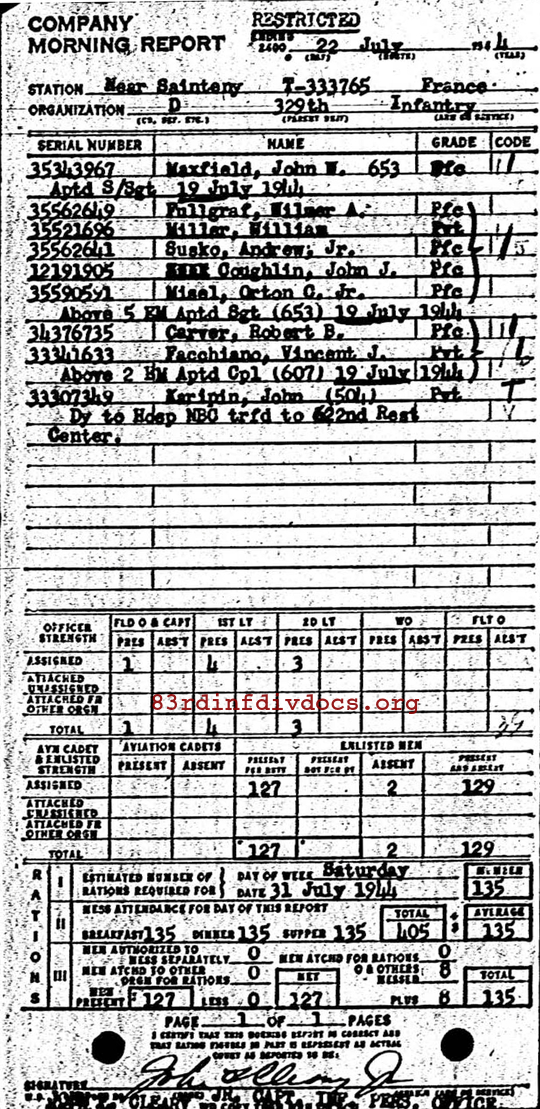 COMPANY RESTRICTED
MORNING REPORT ENDING 2400 22 July 1944
(DAY) (MONTH) (YEAR)
STATION Near Sainteny T-333765 France
ORGANIZATION D 329th Infantry
(CO, DET, ETC.) (PARENT UNIT) (ARM OR SERVICE)
SERIAL NUMBER NAME GRADE CODE
35343967 Maxfield, John W. 653 Pfc
Aptd S/Sgt 19 July 1944
35562649 Fullgraf, Wilmer A. Pfc
35521696 Miller, William Pvt
35562641 Susko, Andrew, Jr. Pfc
12191905 Coughlin, John J. Pfc
35590591 Misel, Orton C. Jr. Pfc
Above 5 EM Aptd Sgt (653) 19 July 1944
34376735 Carver, Robert B. Pfc
33341633 Facchiano, Vincent J. Pvt
Above 2 EM Aptd Cpl (607) 19 July 1944
33307349 Karipin, John (504) Pvt
Dy to Hosp NBC trfd to 622nd Rest
Center.
OFFICER STRENGTH FLD O & CAPT 1ST LT 2D LT WO FLT O
PRES ABS'T PRES ABS'T PRES ABS'T PRES ABS'T PRES ABS'T
ASSIGNED 1 4 3
ATTACHED UNASSIGNED
ATTACHED FR OTHER ORGN
83rdinfdivdocs.org
TOTAL 1 4 3
AVN CADET & ENLISTED STRENGTH AVIATION CADETS ENLISTED MEN
PRESENT ABSENT PRESENT FOR DUTY PRESENT NOT FOR DY ABSENT PRESENT AND ABSENT
ASSIGNED 127 2 129
ATTACHED UNASSIGNED
ATTACHED FR OTHER ORGN
TOTAL 127 2 129
RATIONS
I ESTIMATED NUMBER OF RATIONS REQUIRED FOR DAY OF WEEK Saturday NUMBER
DATE 31 July 1944 135
II MESS ATTENDANCE FOR DAY OF THIS REPORT TOTAL ÷ 3 AVERAGE
BREAKFAST 135 DINNER 135 SUPPER 135 405 135
III MEN AUTHORIZED TO MESS SEPARATELY 0 MEN ATCHD FOR RATIONS 0
MEN ATCHD TO OTHER ORGN FOR RATIONS 0 NET O & OTHERS MESSED 8 TOTAL
MEN PRESENT 127 LESS 0 127 PLUS 8 135
PAGE 1 OF 1 PAGES
I CERTIFY THAT THIS MORNING REPORT IS CORRECT AND
THAT RATION FIGURES IN PART III REPRESENT AN ACTUAL
COUNT AS REPORTED TO ME:
SIGNATURE John L Cleary Jr
JOHN L. CLEARY JR, CAPT, INF, PERS. OFFICE